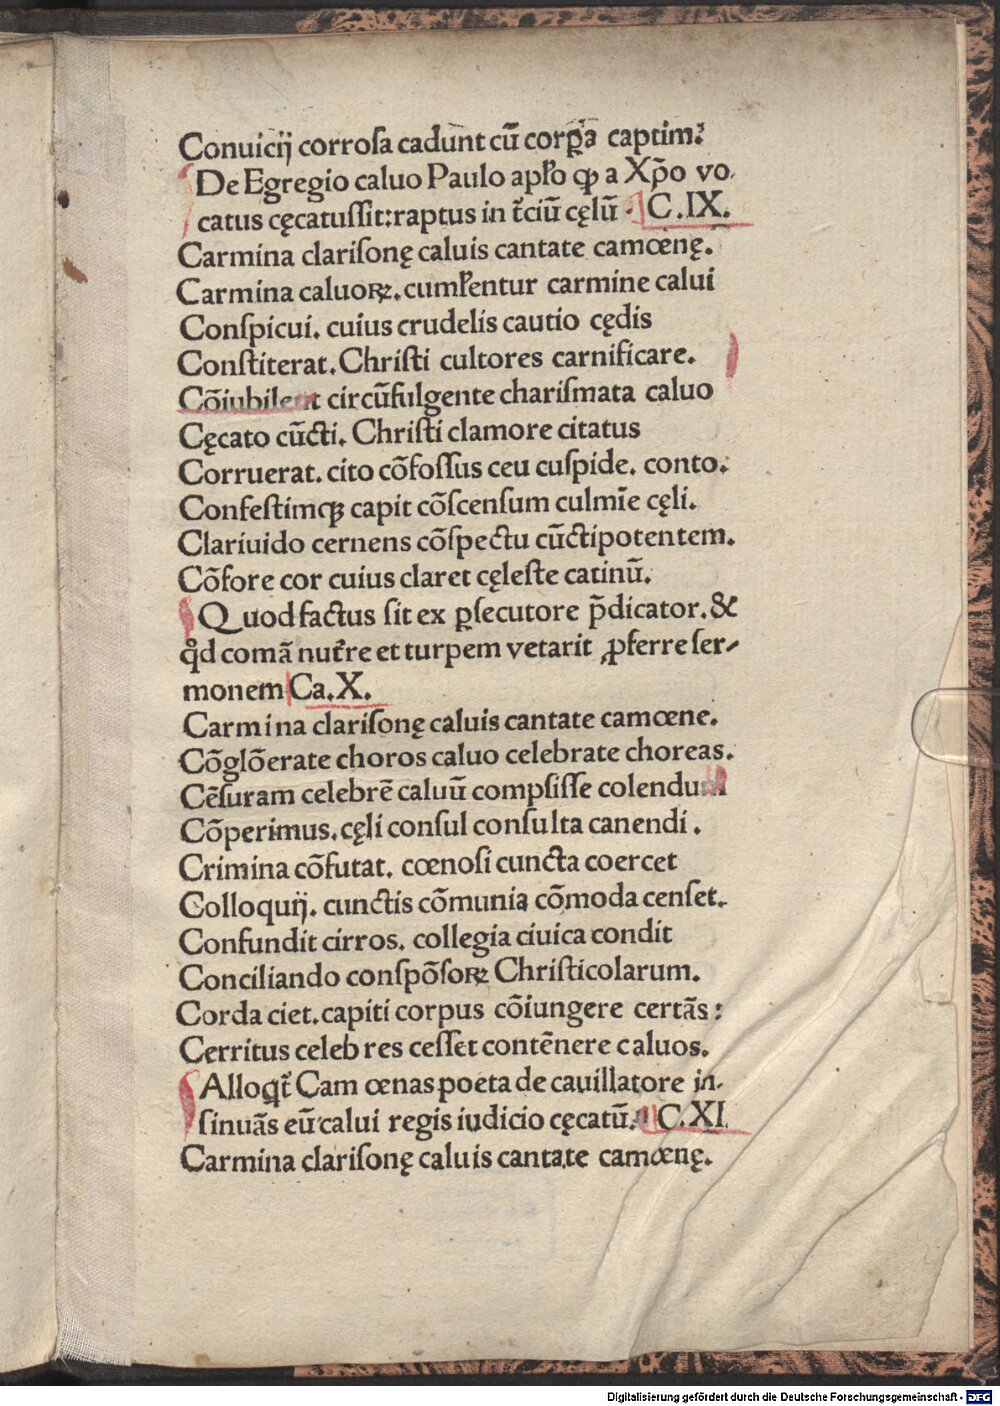 Conuicij corroſa cadunt cū corꝑa captim.
De Egregio caluo Paulo apło ꝙ a Xp̄o vo-
catus cęcatuſſit: raptus in t̄ciū cęlū. C.IX.
Carmina clariſonę caluis cantate camœnę.
Carmina caluoꝝ. cumꝉentur carmine calui
Conſpicui. cuius crudelis cautio cędis
Conſtiterat. Chriſti cultores carnificare.
Cōiubilent circūfulgente chariſmata caluo
Cęcato cūcti. Chriſti clamore citatus
Corruerat. cito cōfoſſus ceu cuſpide. conto.
Confeſtimqꝫ capit cōſcenſum culmīe cęli.
Clariuido cernens cōſpectu cūctipotentem.
Cōfore cor cuius claret cęleſte catinū.
Quod factus ſit ex ꝑſecutore p̄dicator. &
qͦd comā nut̄re et turpem vetarit ꝓferre ſer-
monem Ca.X.
Carmina clariſonę caluis cantate camœne.
Cōglōerate choros caluo celebrate choreas.
Cēſuram celebrē caluū compſiſſe colendum
Cōperimus. cęli conſul conſulta canendi.
Crimina cōfutat. cœnoſi cuncta coercet
Colloquij. cunctis cōmunia cōmoda cenſet.
Confundit cirros. collegia ciuica condit
Conciliando conſpōſoꝝ Chriſticolarum.
Corda ciet. capiti corpus cōiungere certās:
Cerritus celebres ceſſet contēnere caluos.
Alloqt̄ Camœnas poeta de cauillatore in-
ſinuās eū calui regis iudicio cęcatū. C.XI.
Carmina clariſonę caluis cantate camœnę.
Digitalisierung gefördert durch die Deutsche Forschungsgemeinschaft - DFG